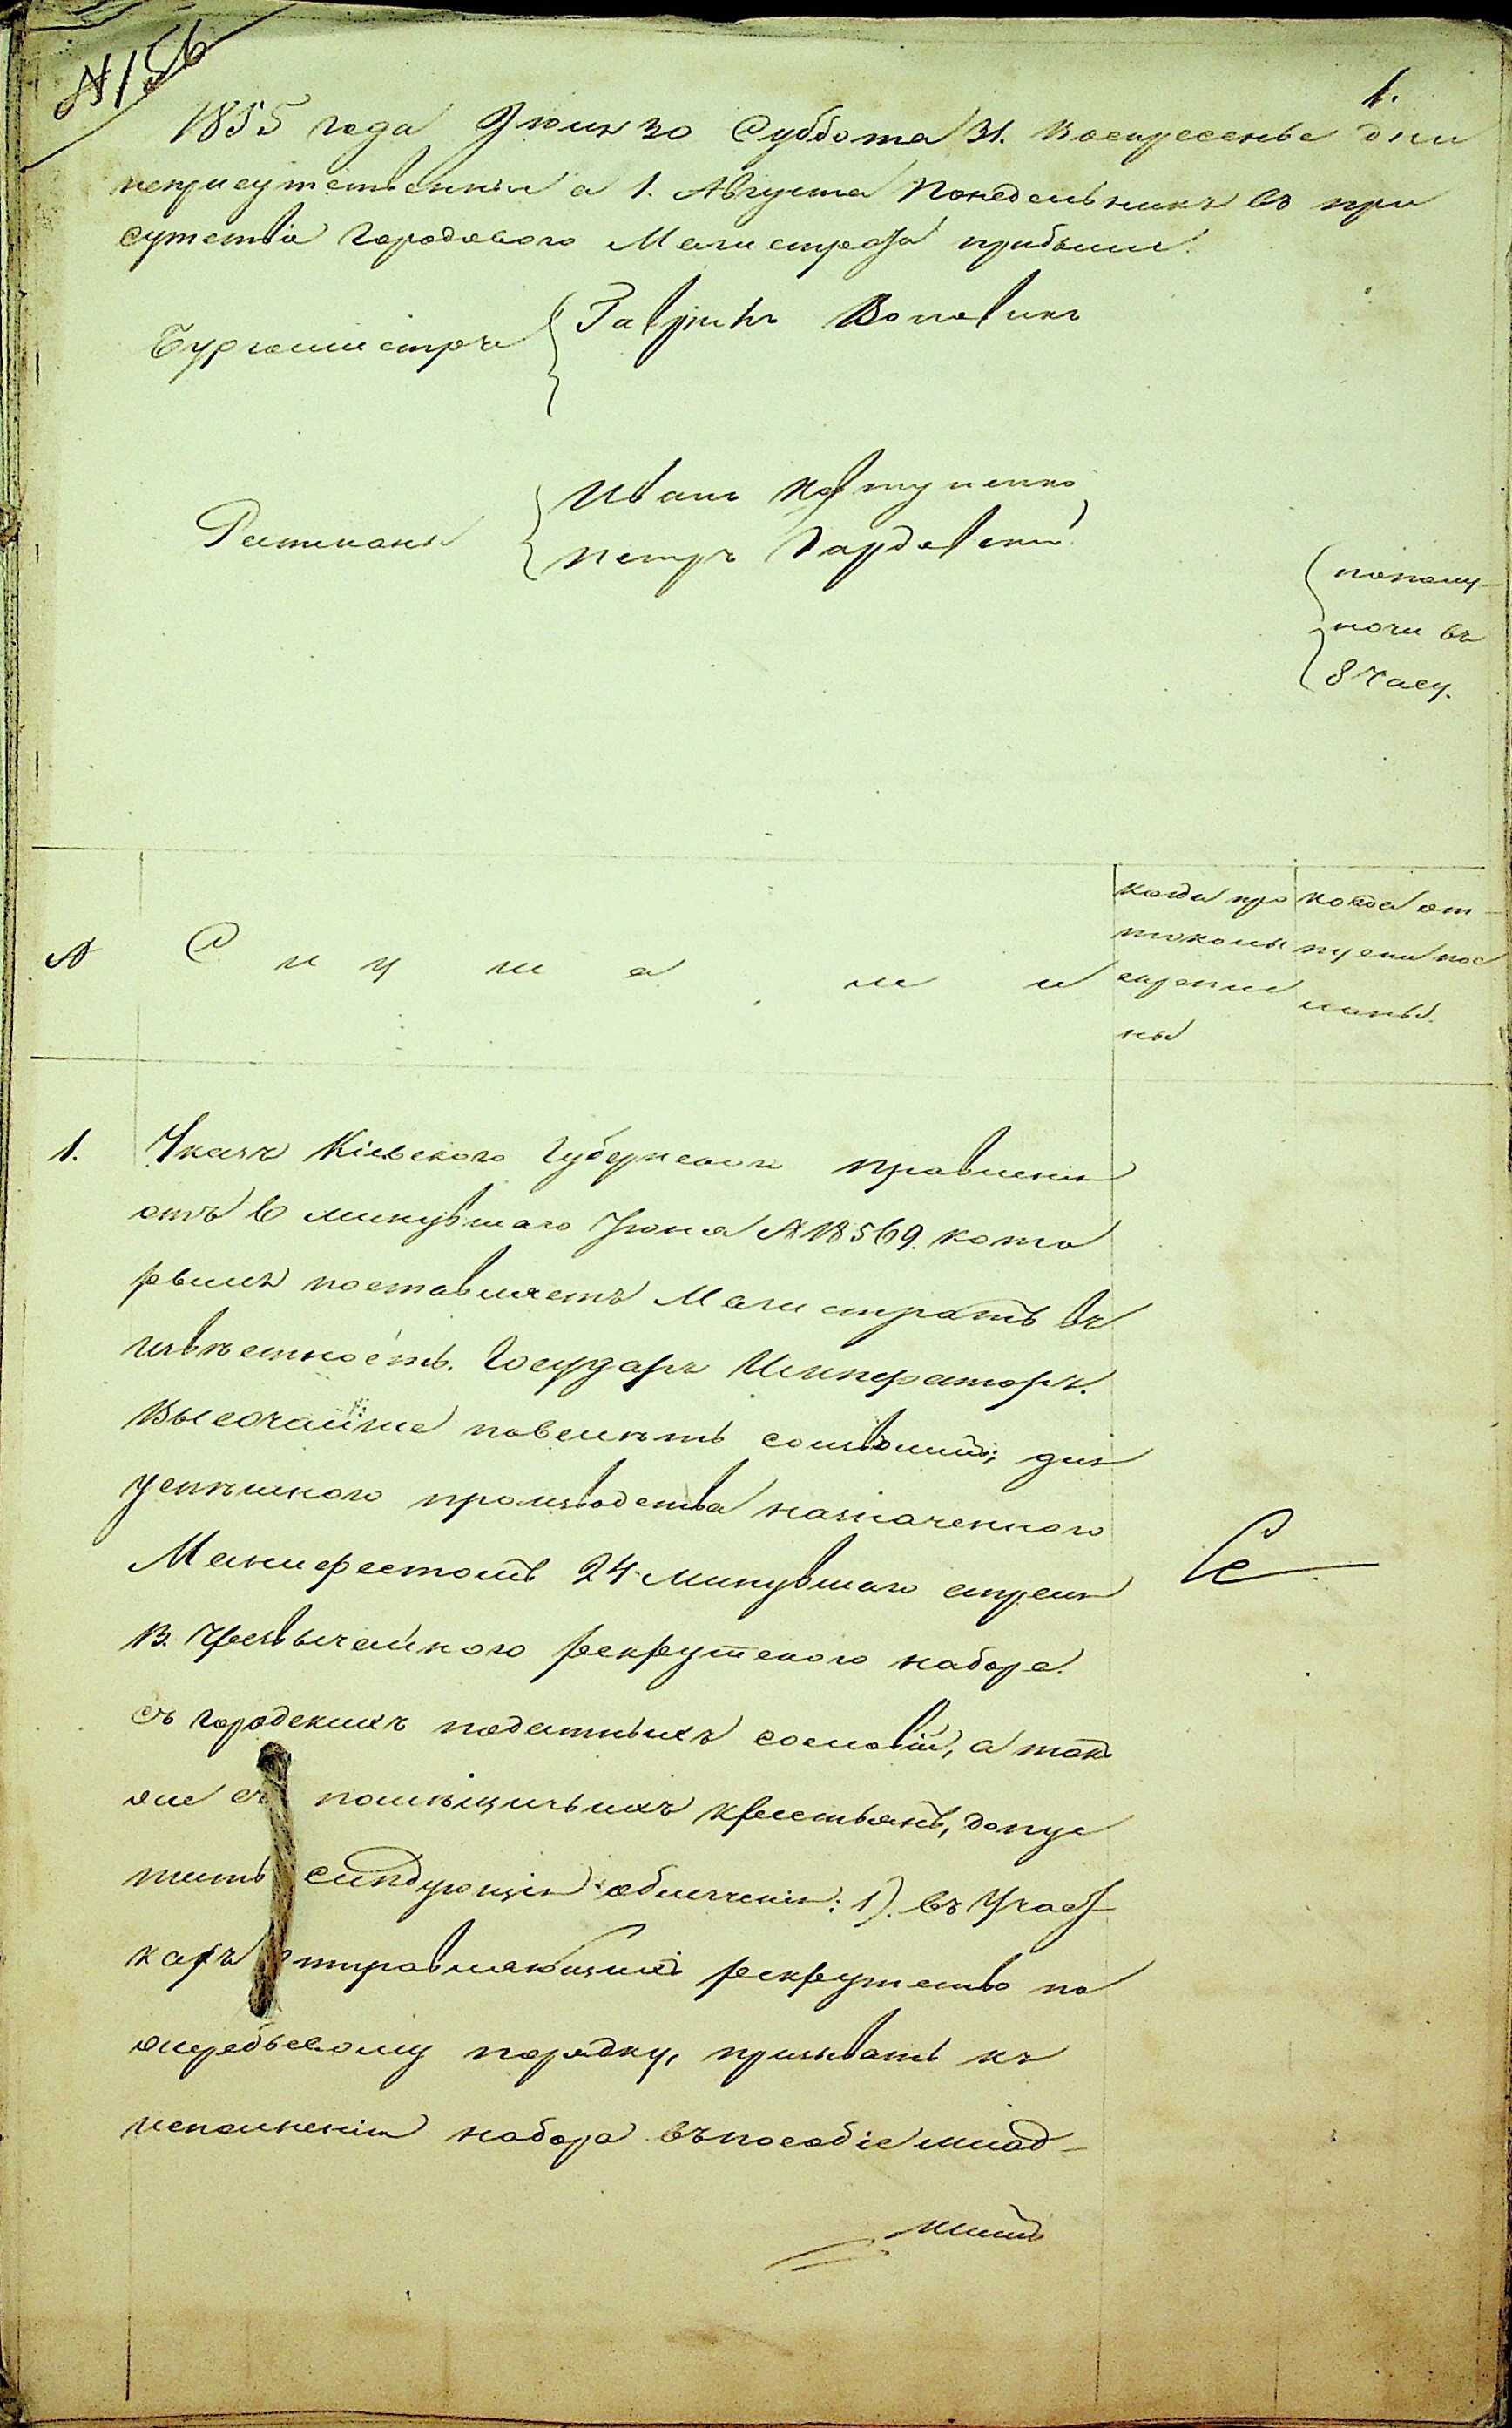 № 156
1.
1855 года Июля 30 Суббота 31. Воскресенье дни
неприсутственныя а 1. Августа Понедельникъ въ при
сутствіи Городоваго Магистрата прибыли:
Бургомистръ
Гаврiилъ
Ратманы
Иванъ Ковтуненко
Петръ
пополу-
ночи въ
8 часу.
№
С л у ш а л и
когда про
токолы
скрепле
ны
когда от-
пуски пос
ланы.
1. Указъ Кіевского Губернскаго правленія
отъ 6 минувшаго Июня № 18569. кото
рымъ поставляетъ Магистратъ въ
извѣстность. Государь Императоръ.
Высочайше повелѣть соизволилъ; для
успѣшного производства назначенного
Манифестомъ 24 минувшаго апреля
13. чрезвычайного рекрутского набора
съ городскихъ податныхъ сословій, а такъ
же съ помѣщичьихъ крестьянъ, допус
тить слѣдующія облегченія: 1). въ Участ
кахъ отправляющихъ рекрутство по
жеребьевому порядку, призывать къ
исполненію набора въ пособіе млад-
шимъ